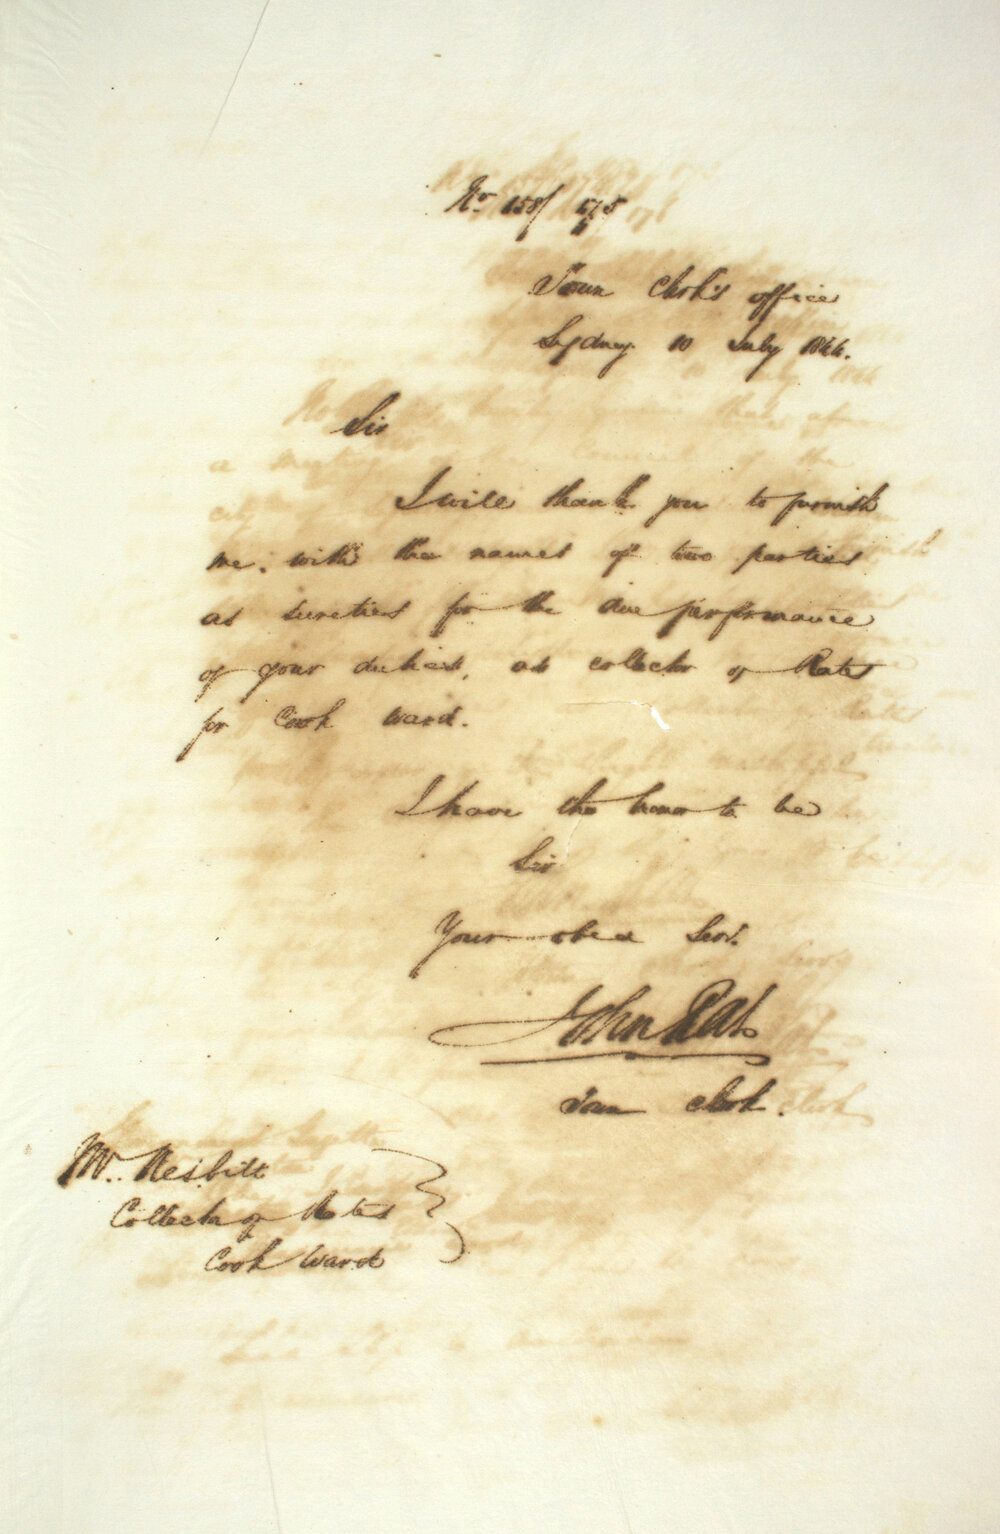 No. 158/
Town Clerk's office
Sydney 10 July 1844.
Sir
I will thank you to furnish
me. with the names of two parties
as sureties for the due performance
of your duties, as collector of Rates
for Cook Ward.
I have the honor to be
Sir
Your obed Servt.
John Rae
Town Clerk.
Mr. Nesbitt
Collector of Rates
Cook Ward